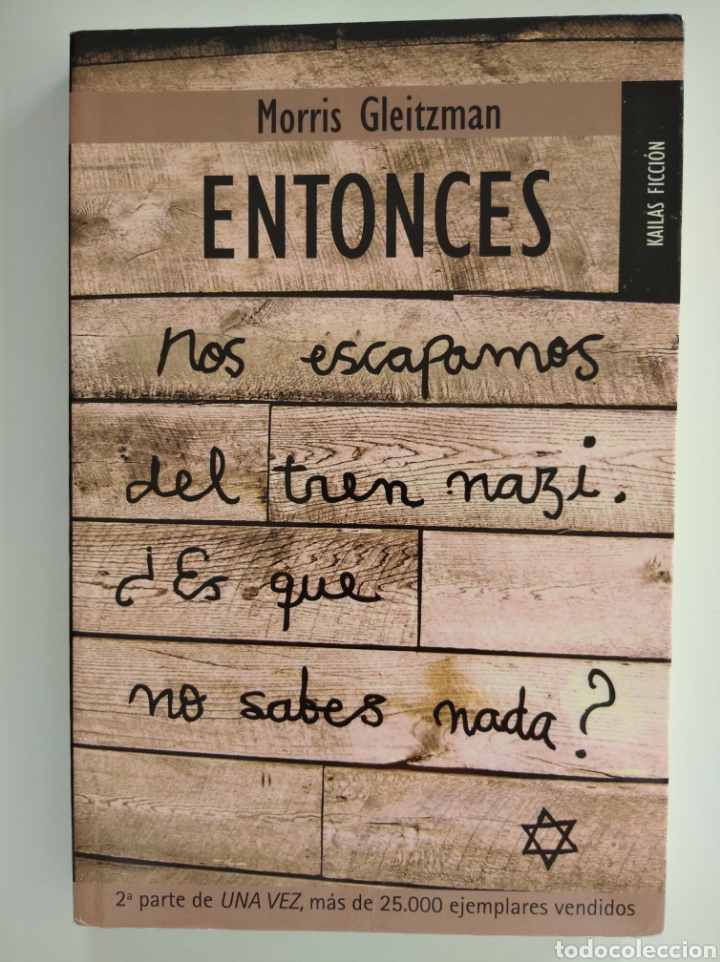 Morris Gleitzman
KAILAS FICCIÓN
ENTONCES
Nos escapamos
del tren nazi.
¿Es que
no sabes nada?
2ª parte de UNA VEZ, más de 25.000 ejemplares vendidos
todocoleccion